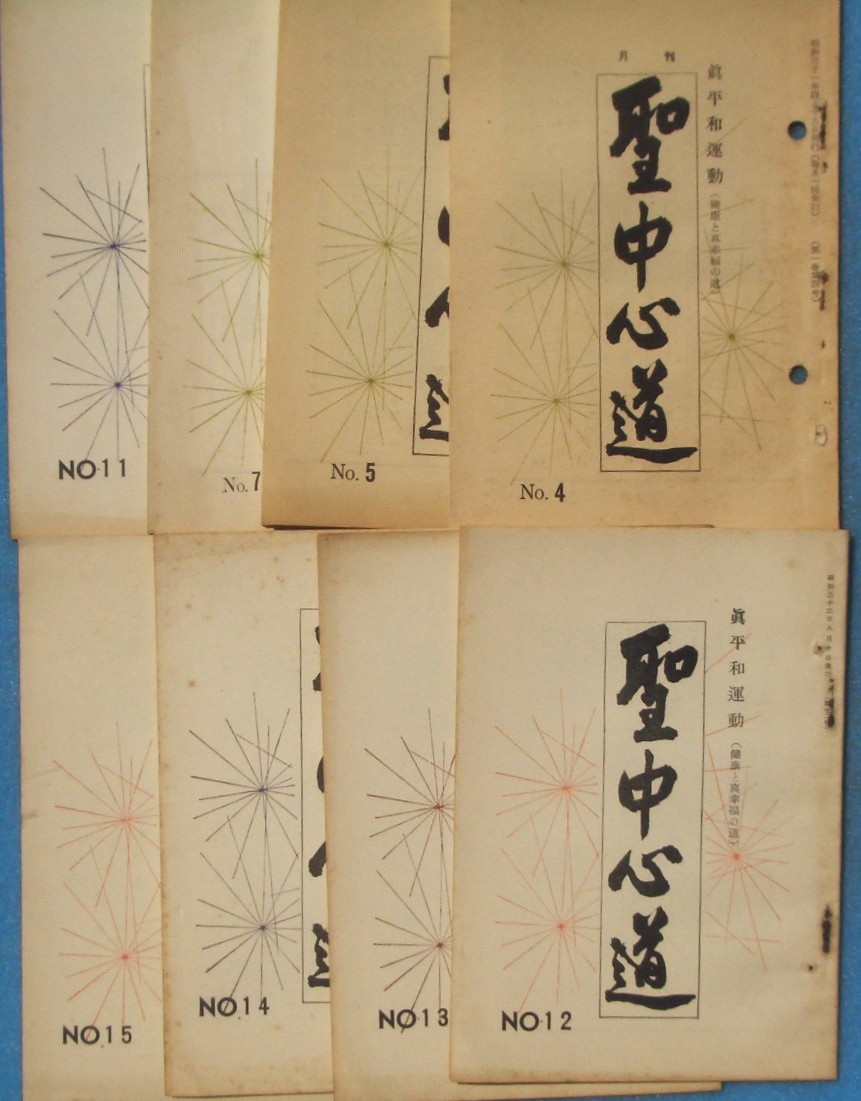 NO.11
No. 7
No. 5
月刊
聖中心道
眞平和運動
(健康と真幸福の道)
No. 4
NO.15
NO.14
NO.13
聖中心道
眞平和運動
(健康と真幸福の道)
NO.12